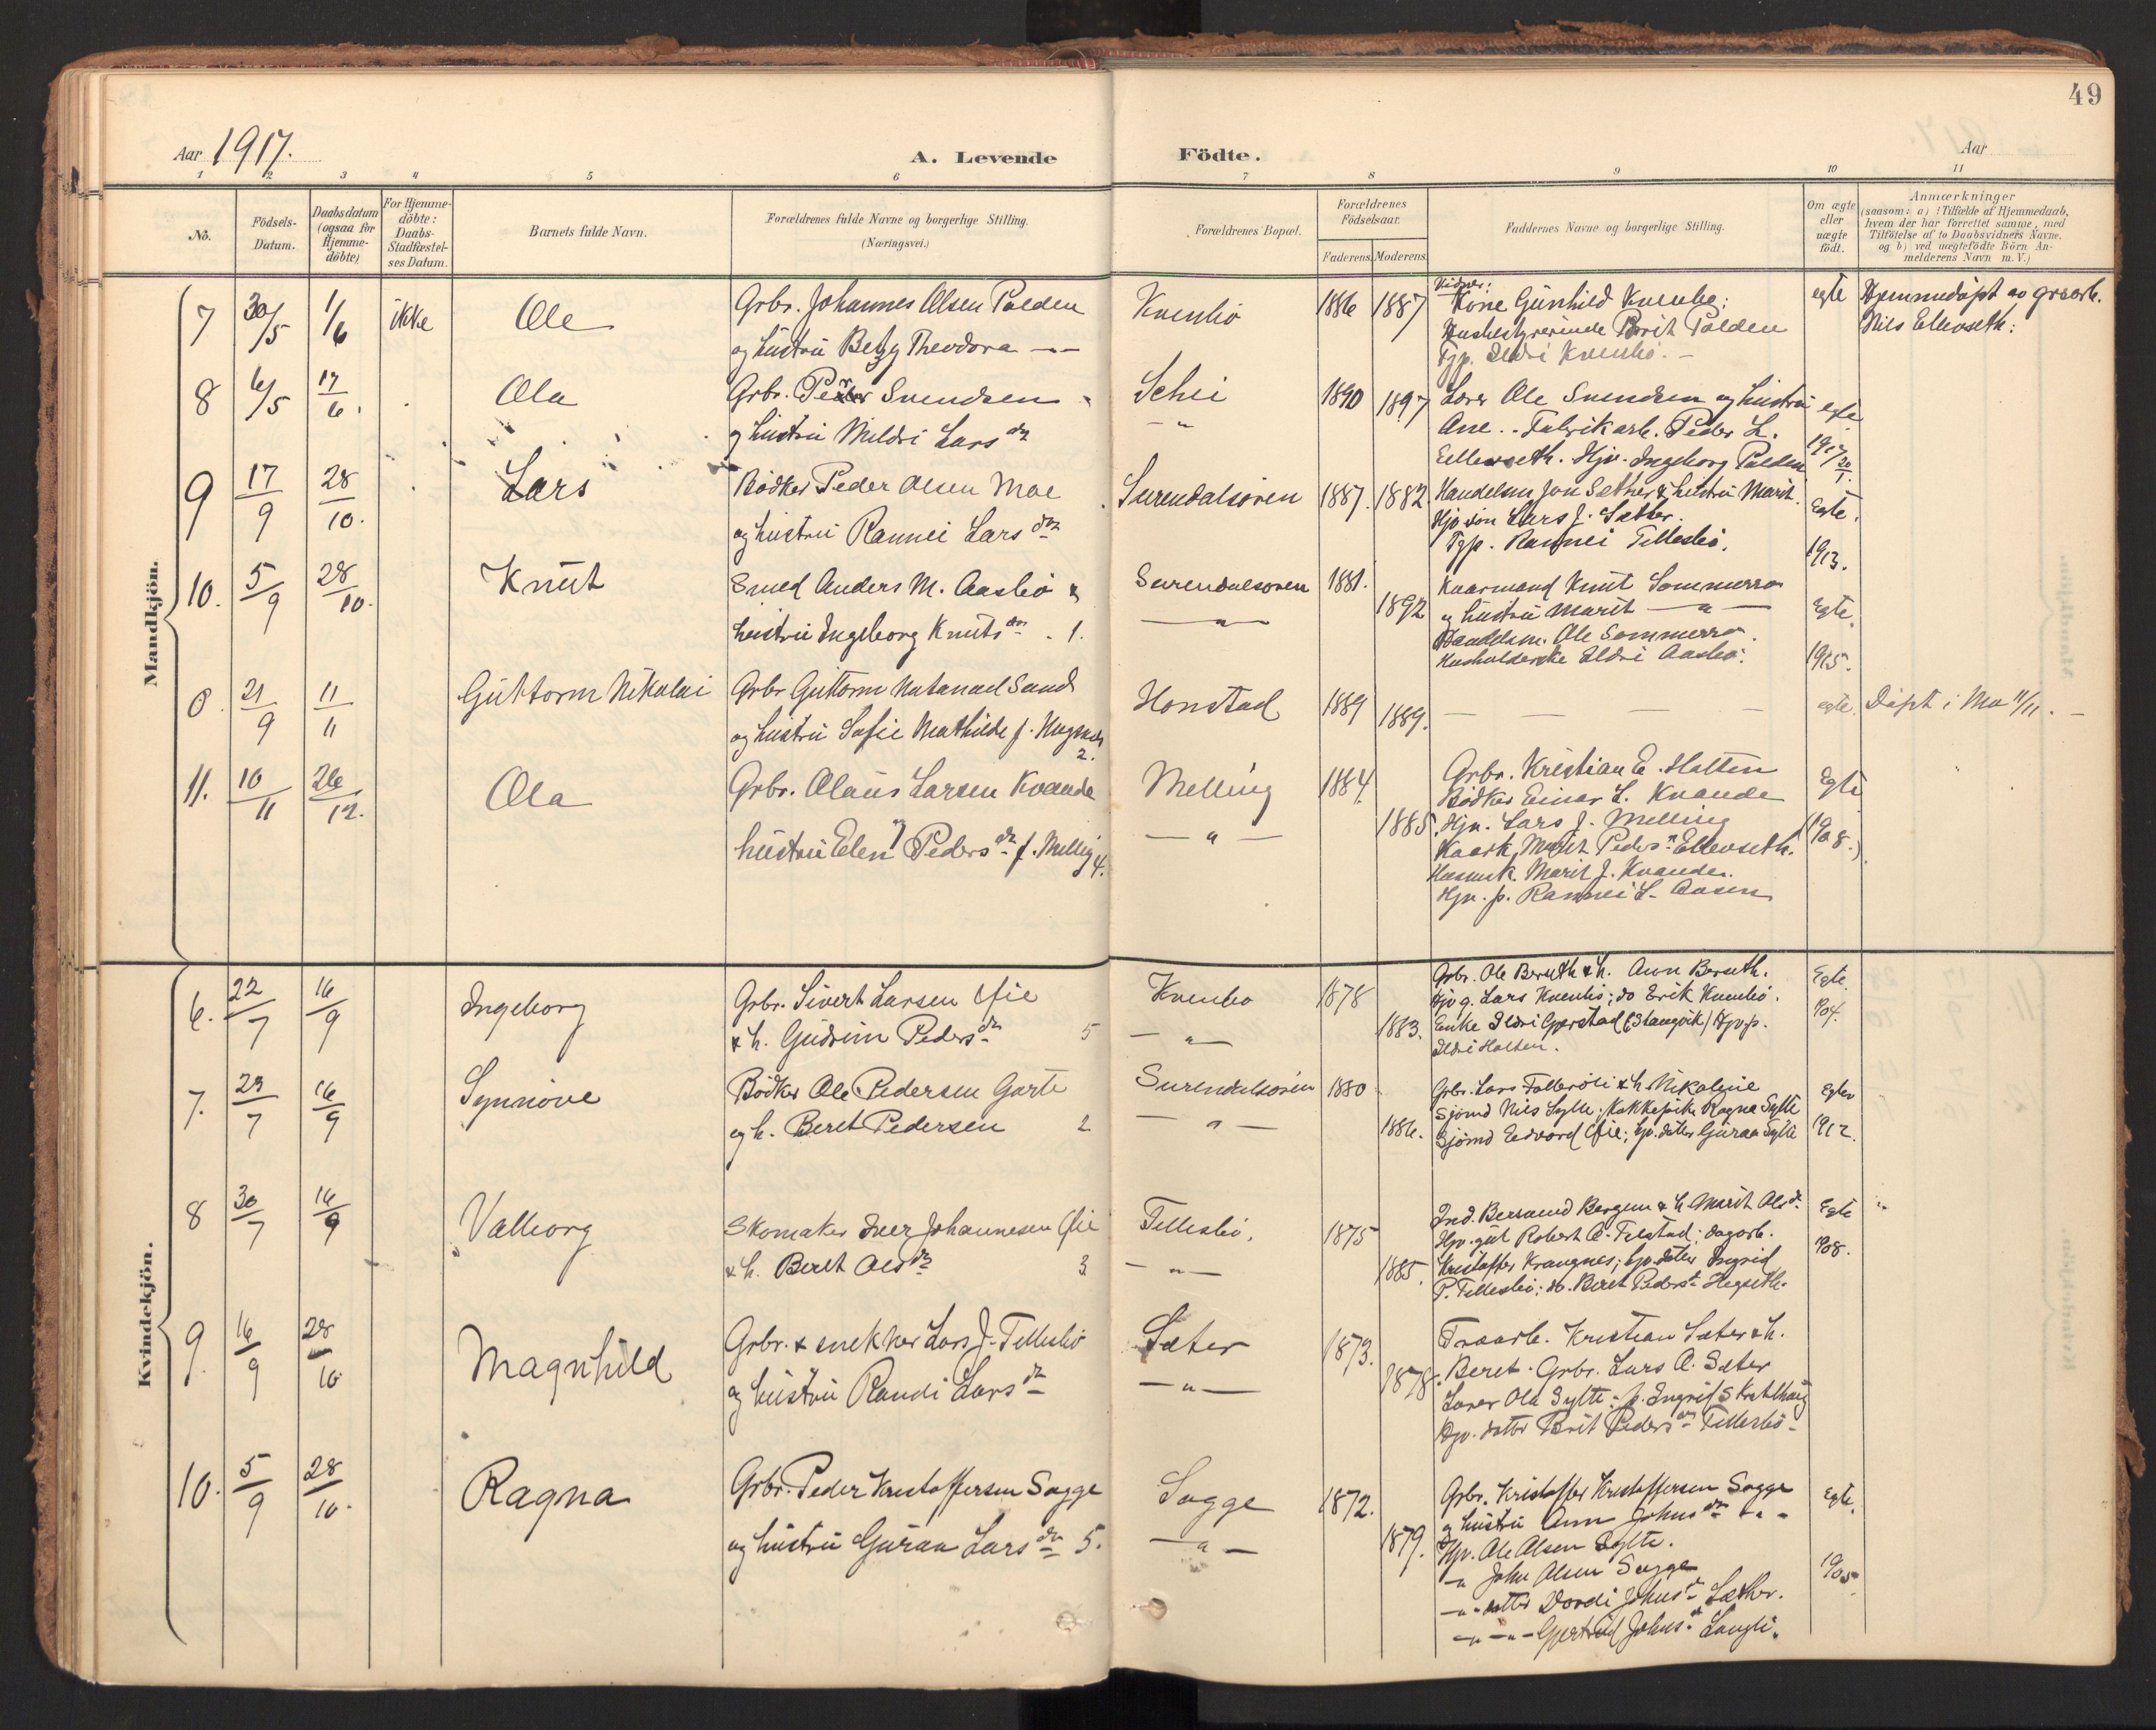 49
Aar 1917.
A. Levende Födte.
Aar
1 2 3 4 5 6 7 8 9 10 11
No.
Födsels-Datum.
Daabsdatum (ogsaa for Hjemme-döbte)
For Hjemme-döbte: Daabs-Stadfæstel-ses Datum.
Barnets fulde Navn.
Forældrenes fulde Navne og borgerlige Stilling.
(Næringsvei.)
Forældrenes Bopæl.
Forældrenes Födselsaar.
Faderens. Moderens.
Faddernes Navne og borgerlige Stilling.
Om ægte eller uægte født.
Anmærkninger
(saasom: a) i Tilfælde af Hjemmedaab, hvem der har forrettet samme, med Tilföielse af to Daabsvidners Navne. og b) ved uægtefödte Börn An-melderens Navn m. V.)
Mandkjön.
7 30/5 1/6 ikke Ole
Grbr. Johannes Olsen Polden
og hustru Betzy Theodora —"—
Kvenbö 1886 1887
Vidner:
Kone Gunhild Kvenbø;
Husbestyrerinde Berit Polden
Tjp. Ildri Kvenbø. —
egte
Hjemmedøpt av graarb.
Nils Ellevseth:
8 6/5 17/6. Ola
Grbr. Peder Svendsen
og hustru Mildri Larsdn
Schei
—"
1890 1897
Lærer Ole Svendsen og hustru
Ane. - Fabrikarb. Peder L.
Ellevseth. Hjv. Ingeborg Polden
egte
1917 20/1.
9 17/9 28/10. Lars
Bødker Peder Olsen Moe
og hustru Rannei Larsdn
Surendalsøren 1887. 1882
Handelsm. Jon Sæther & hustru Marit.
Hjv søn Lars J. Sæther.
Tjp. Rannei Tellesbø.
Egte.
1913.
10. 5/9 28/10. Knut
Smed Anders M. Aasbø &
hustru Ingeborg Knutsdn. 1.
Surendalsøren
—"—
1881. 1892
Kaarmand Knut Sommerro
og hustru Marit —"—
Handelsm. Ole Sommerro.
Husholderske Ildri Aasbø.
Egte.
1915.
0. 21/9 11/11 Guttorm Nikolai
Grbr Guttorm Natanael Sand
og hustru Sofie Mathilde f.
2.
Honstad 1889 1889.
— — — —
egte.
Døpt i Mo 11/11. —
11. 10/11 26/12. Ola
Grbr. Olaus Larsen Kvande
og
hustru Elen Pedersdn f. Melling 4.
Melling
—"—
1884 1885.
Grbr. Kristian E. Holten
Bødker Einar L. Kvande
Hjv. Lars J. Melling
Kaark. Marit Pedersn Ellevseth.
Husmk. Marit J. Kvande.
Hjv. p. Rannei L. Aasen
Egte
1908.
Kvindekjön.
6. 22/7 16/9 Ingeborg
Grbr. Sivert Larsen Øie
& h. Gudrun Pedersdn 5
Kvenbø
—"—
1878 1883.
Grbr. Ole Beruth & h. Ann Beruth.
Hjv g. Lars Kvenbø; do Erik Kvenbø.
Enke Ildri Gjerstad (Stangvik) Hjv p.
Ildri Holten.
Egte.
904.
7. 23/7 16/9 Synnöve
Bødker Ole Pedersen Garte
og h. Beret Pedersen 2
Surendalsøren
—"—
1880 1886.
Grbr. Lars Tellerøli & h. Nikoline
Sjömd Nils Sylte; Kokkepike Ragna Sylte
Sjömd Edvard Øie; hjv. datter Guraa Sylte
Egte
1912.
8 30/7 16/9 Valborg
Skomaker Iver Johannesen Øie
& h. Beret Olsdn 3
Tellesbø.
—"—
1875 1885.
Ind. Bersvend Bergem & h. Marit Olsdn.
Hjv. gut Robert A. Telstad; dagarb.
Kristoffer Krangnes; hjv. datter Ingrid
P. Tellesbø; do. Beret Pedersdn Hegseth.
Egte
908.
9. 16/9 28/10 Magnhild
Grbr. & snekker Lars J. Tellesbø
og hustru Randi Larsdn
Sæter
—"—
1873. 1878.
Træarb. Kristian Sæter & h.
Beret. Grbr. Lars A. Sæter
Lærer Ola Sylte; p. Ingrid Skralthaug
Hjv. datter Brit Pedersdn Tellesbø.
10. 5/9 28/10. Ragna
Grbr. Peder Kristoffersen Sogge
og hustru Guraa Larsdn 5.
Sogge
—"—
1872. 1879.
Grbr. Kristoffer Kristoffersen Sogge
og hustru Ann Johnsdn —"—
Hjv. Ole Olsen Sylte.
—" John Olsen Sogge
—"— datter Dordi Johnsdn Sæther.
—"—"— Gjertrud Johnsdn Langli.
Egte.
1905.